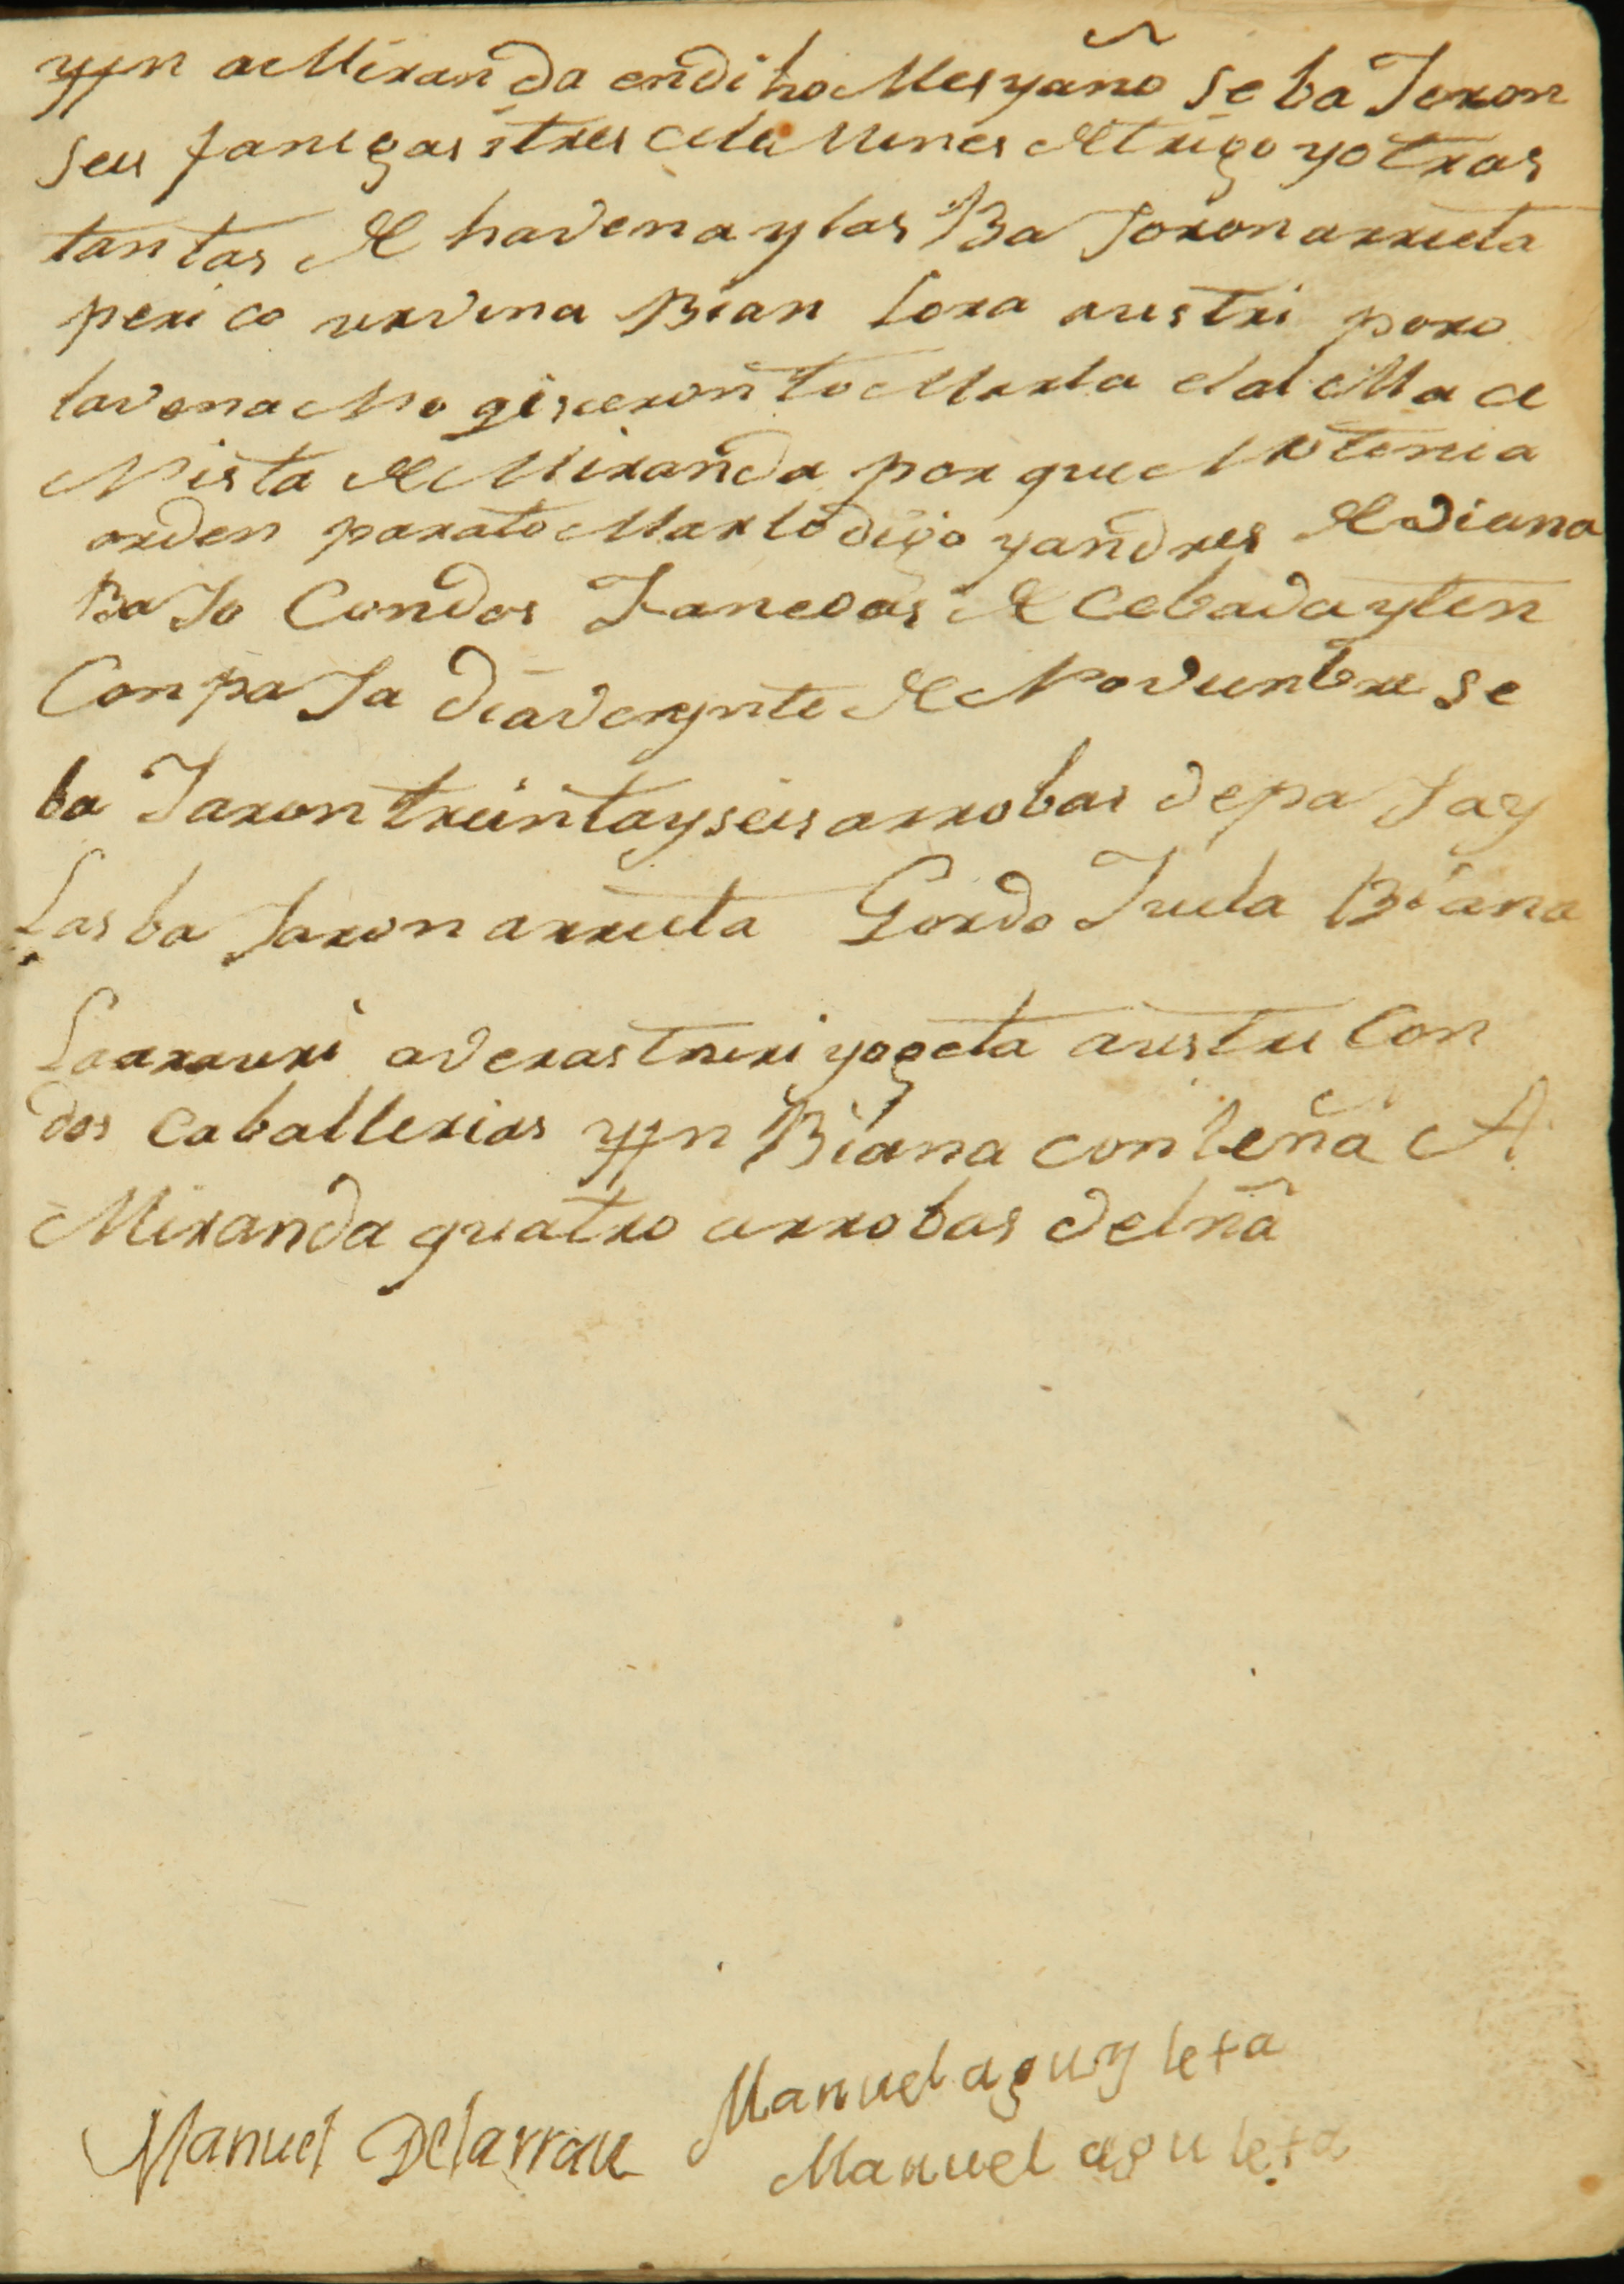 yten a Miranda en diho Mes y año se ba Jaron
seis fanegas i tres cele Mines de trigo y otras
tantas de havena y las Ba Jaron arrieta
perico urvina Bian Lora austri pero
lavena No qisieron to Marla el al Ma ce
Nista de Miranda por que No tenia
orden para to Marlo digo y andres de viana
Ba Jo Con dos Fanegas de Cebada yten
Con pa Ja dia veynte de Novienbre se
ba Jaron treinta y seis arrobas de pa Ja y
Las ba Jaron arrieta Gordo Beana
Laarauri averasturi y ogeta austri Con
dos caballerias yten Biana con leña A
Miranda quatro arrobas de lña
Manuel aguyleta
Manuel Delarrau
Manuel aguleta